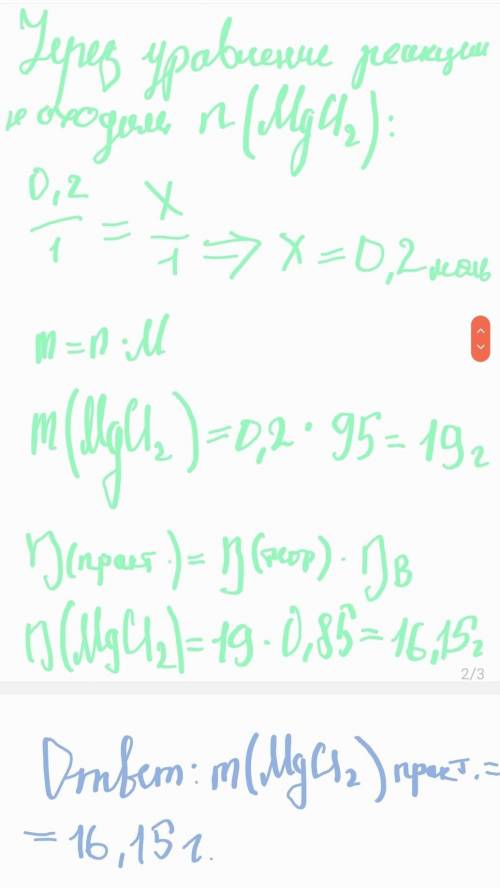 Через уравнение реакции
находим n(MgCl₂):
0,2/1 = X/1 ⇒ X = 0,2 моль
m = n · M
m(MgCl₂) = 0,2 · 95 = 19 г
η(практ.) = η(теор) · ηв
η(MgCl₂) = 19 · 0,85 = 16,15 г
2/3
Ответ: m(MgCl₂) практ. =
= 16,15 г.